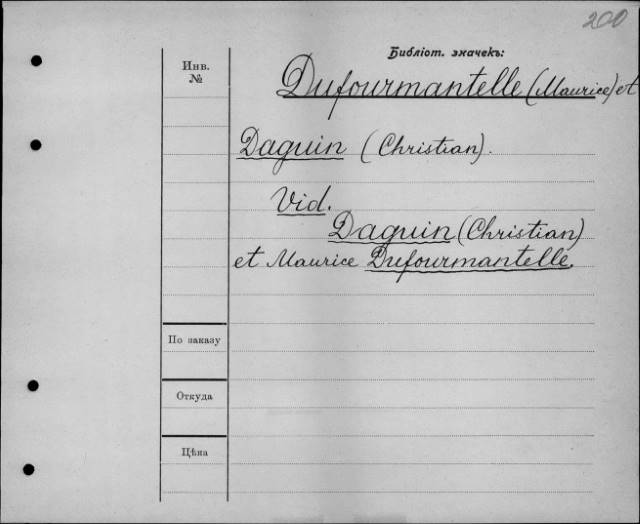 200
Библіот. значекъ:
Инв.
№
Dufourmantelle (Maurice) et
Daguin (Christian).
Vid.
Daguin (Christian)
et Maurice Dufourmantelle.
По заказу
Откуда
Цѣна